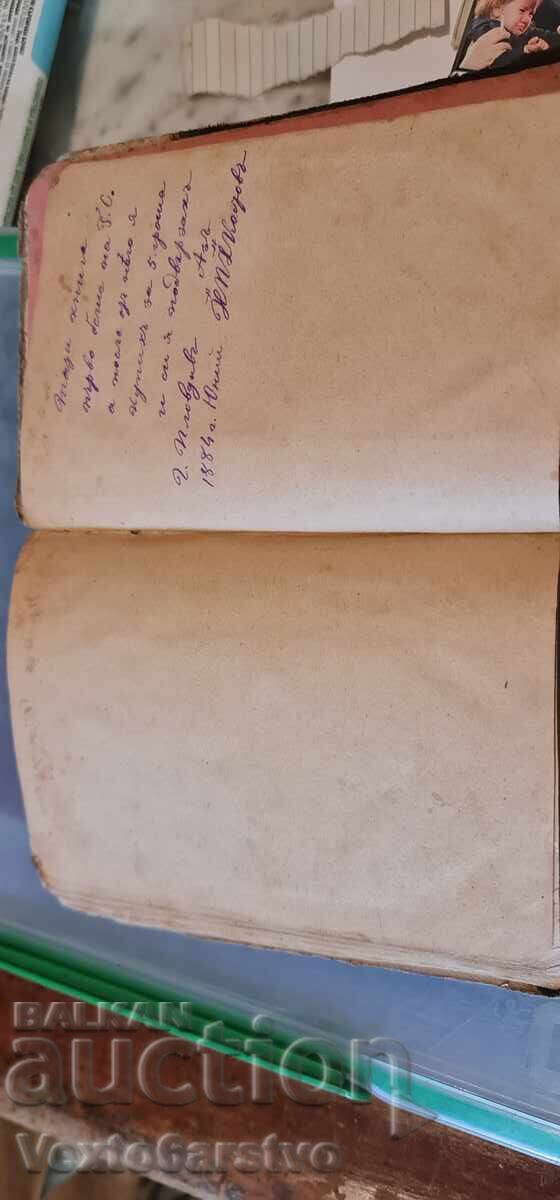 Тази книга
първо беше на Г. С.
а после от него я
купихъ за 5 гроша
и си я подвързахъ
Азъ
Г. Пловдивъ
1884 г. Юний
BALKAN
auction
Vexto6arstvo